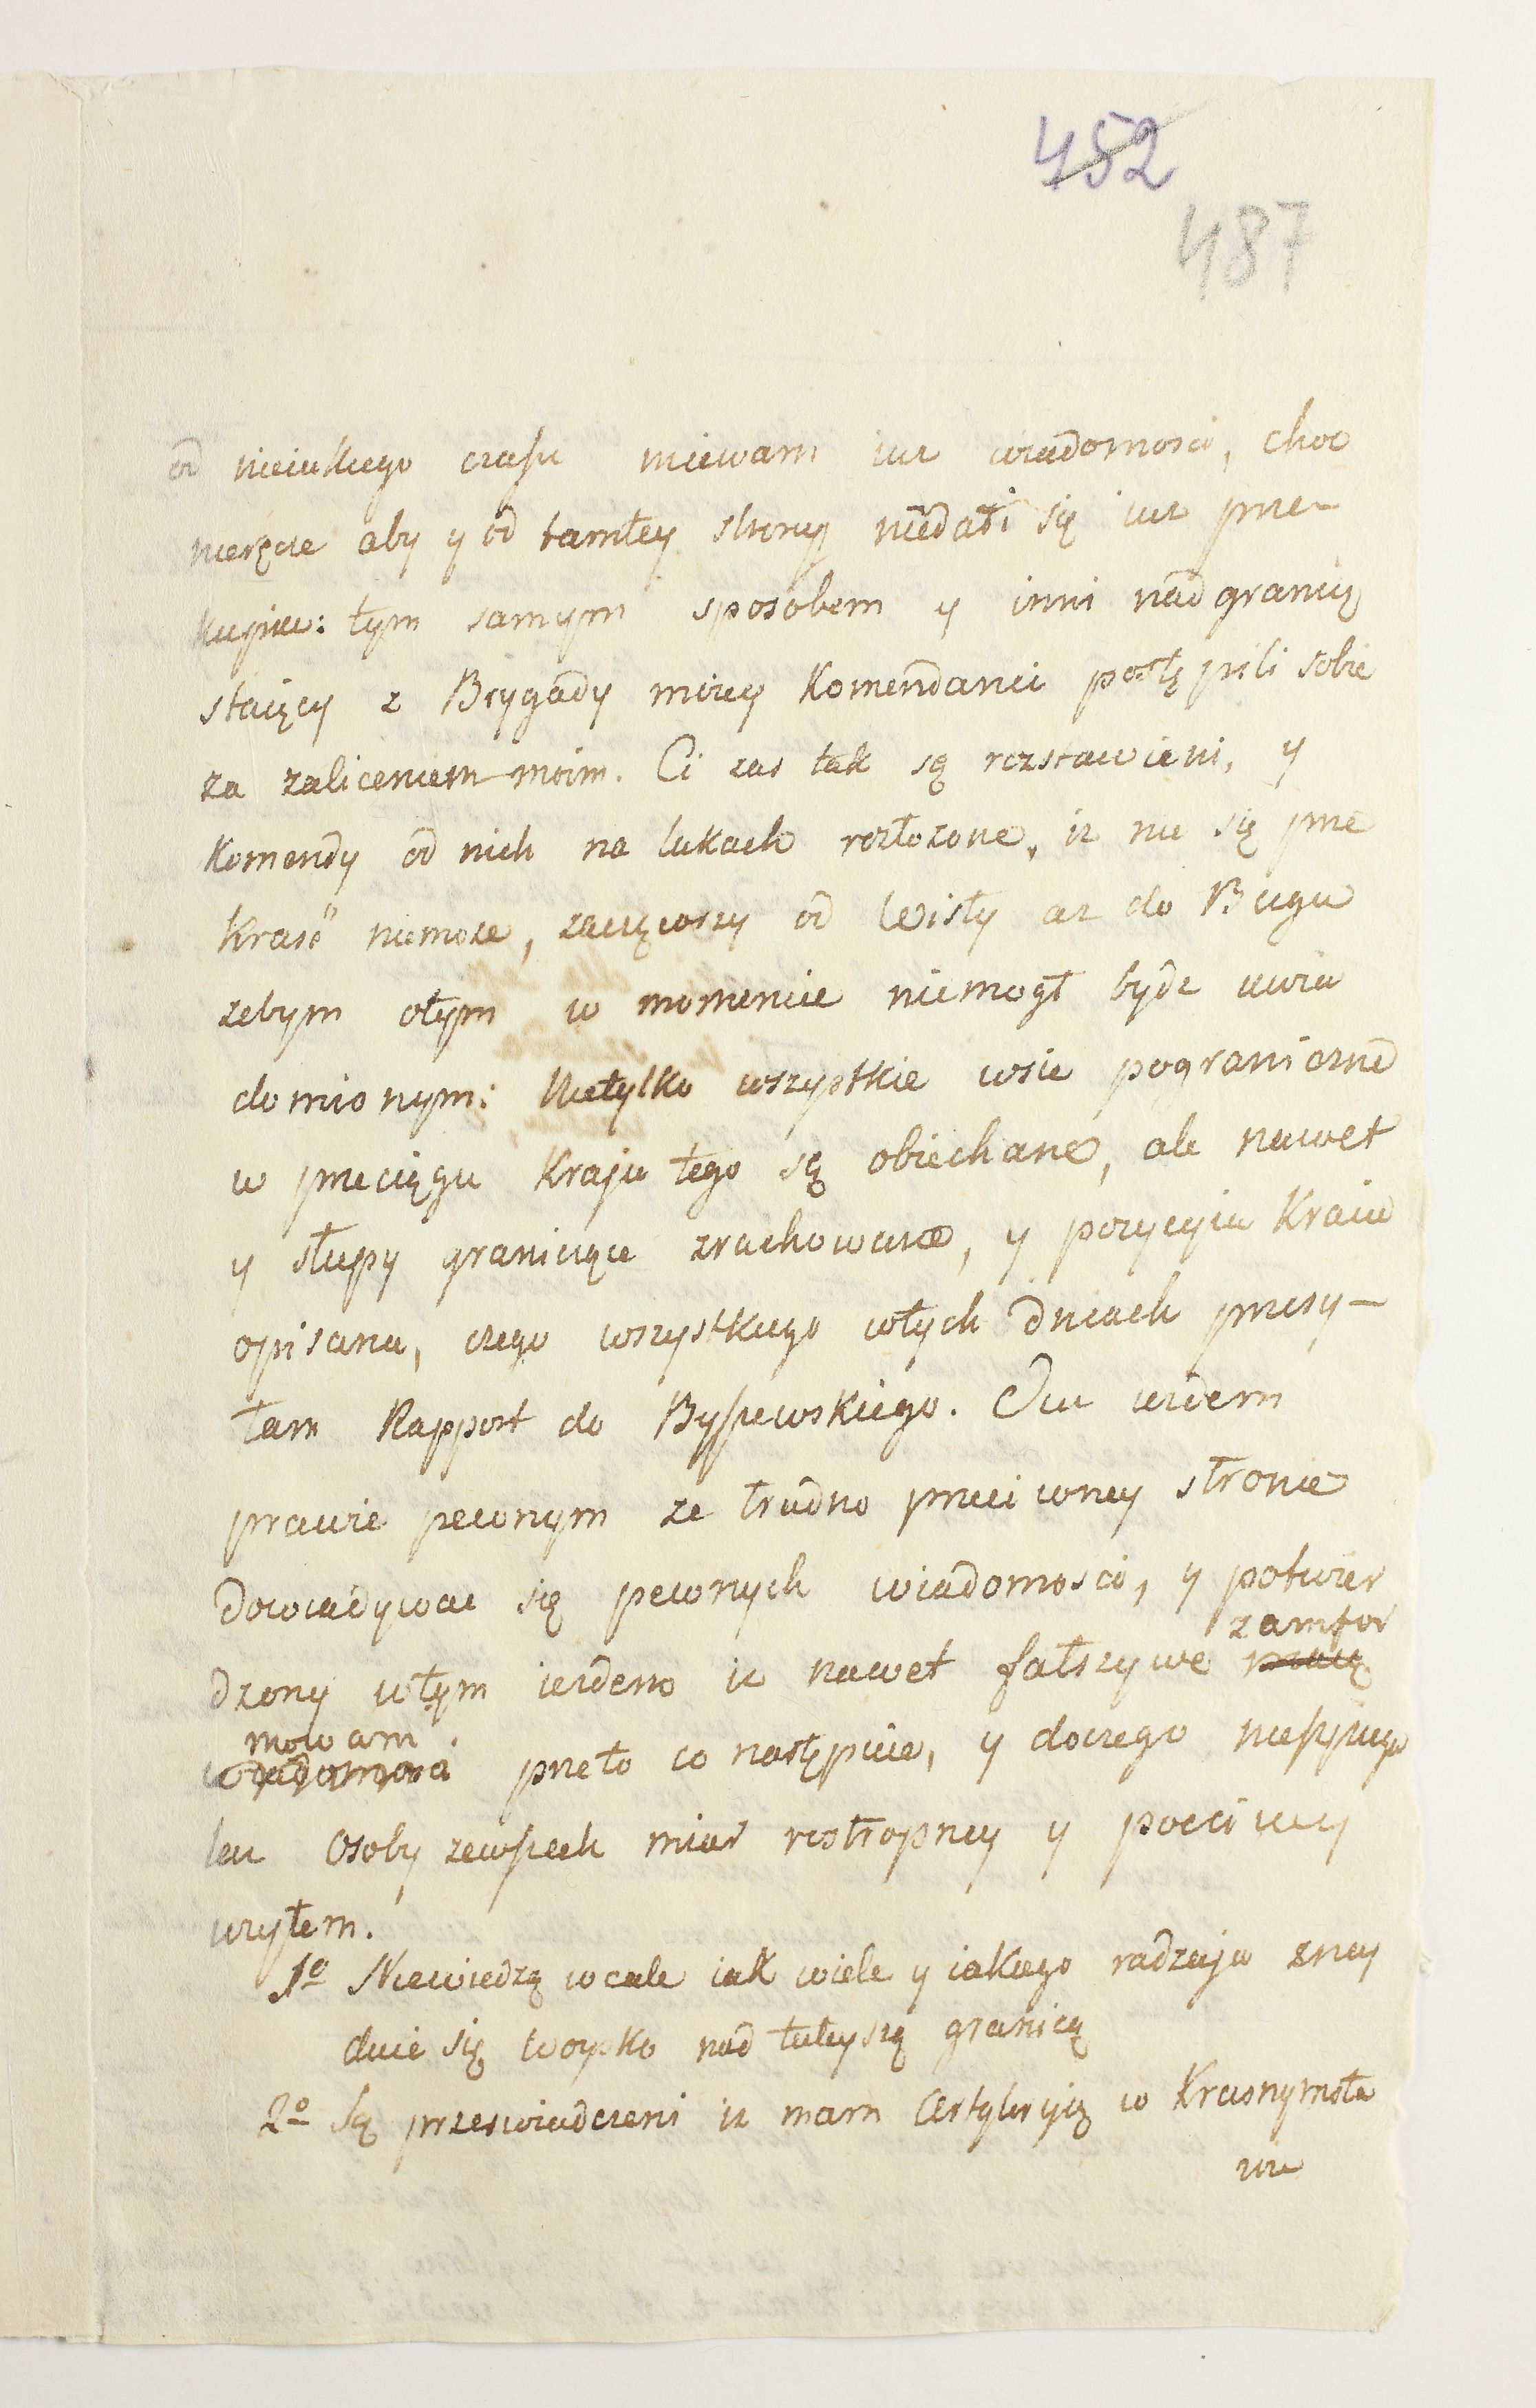 452
487
od nieiakiego czasu miewam iuz wiadomosci, choc
nieręcze aby y od tamtey strony niedali się iuz prze-
kupic: tym samym sposobem y inni nad granicą
staiący z Brygady moiey Komendanci postąpili sobie
za zaliceniem moim. Ci zas tak są rozstawieni, y
Komendy od nich na lukach rozłozone, iz nic się prze
kraść niemoze, zacząwszy od Wisły az do Bugu
zebym otym w momencie niemogł bydz uwia
domionym: Nietylko wszystkie wsie pograniczne
w przeciągu Kraju tego są obiechane, ale nawet
y słupy graniczące zrachowane, y pozycyia Kraiu
opisana, czego wszystkiego wtych dniach przesy-
łam Rapport do Byszewskiego. Iuz iezdem
prawie pewnym ze trudno przeciwney stronie
dowiadywac się pewnych wiadomosci, y potwier
dzony wtym iezdem iz nawet fałszywe zamfor
mowam. przeto co następuie, y doczego nieszpiega
lecz Osoby zewszech miar rostropney y poczciwey
uzyłem.
1o Niewiedzą wcale iak wiele y iakiego radzaju znay
duie się woysko nad tuteyszą granicą
2o Są przeswiadczeni iz mam Artyleryią w Krasnymsta
wie